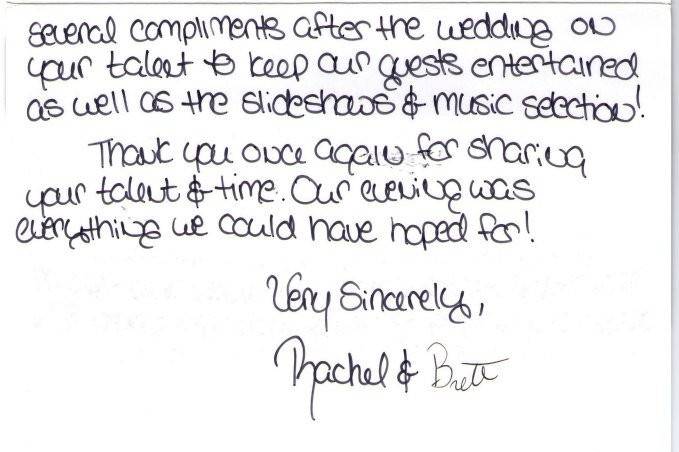 several compliments after the wedding on
your talent to keep our guests entertained
as well as the slideshows & music selection!
Thank you once again for sharing
your talent & time. Our evening was
everything we could have hoped for!
Very Sincerely,
Rachel & Brett